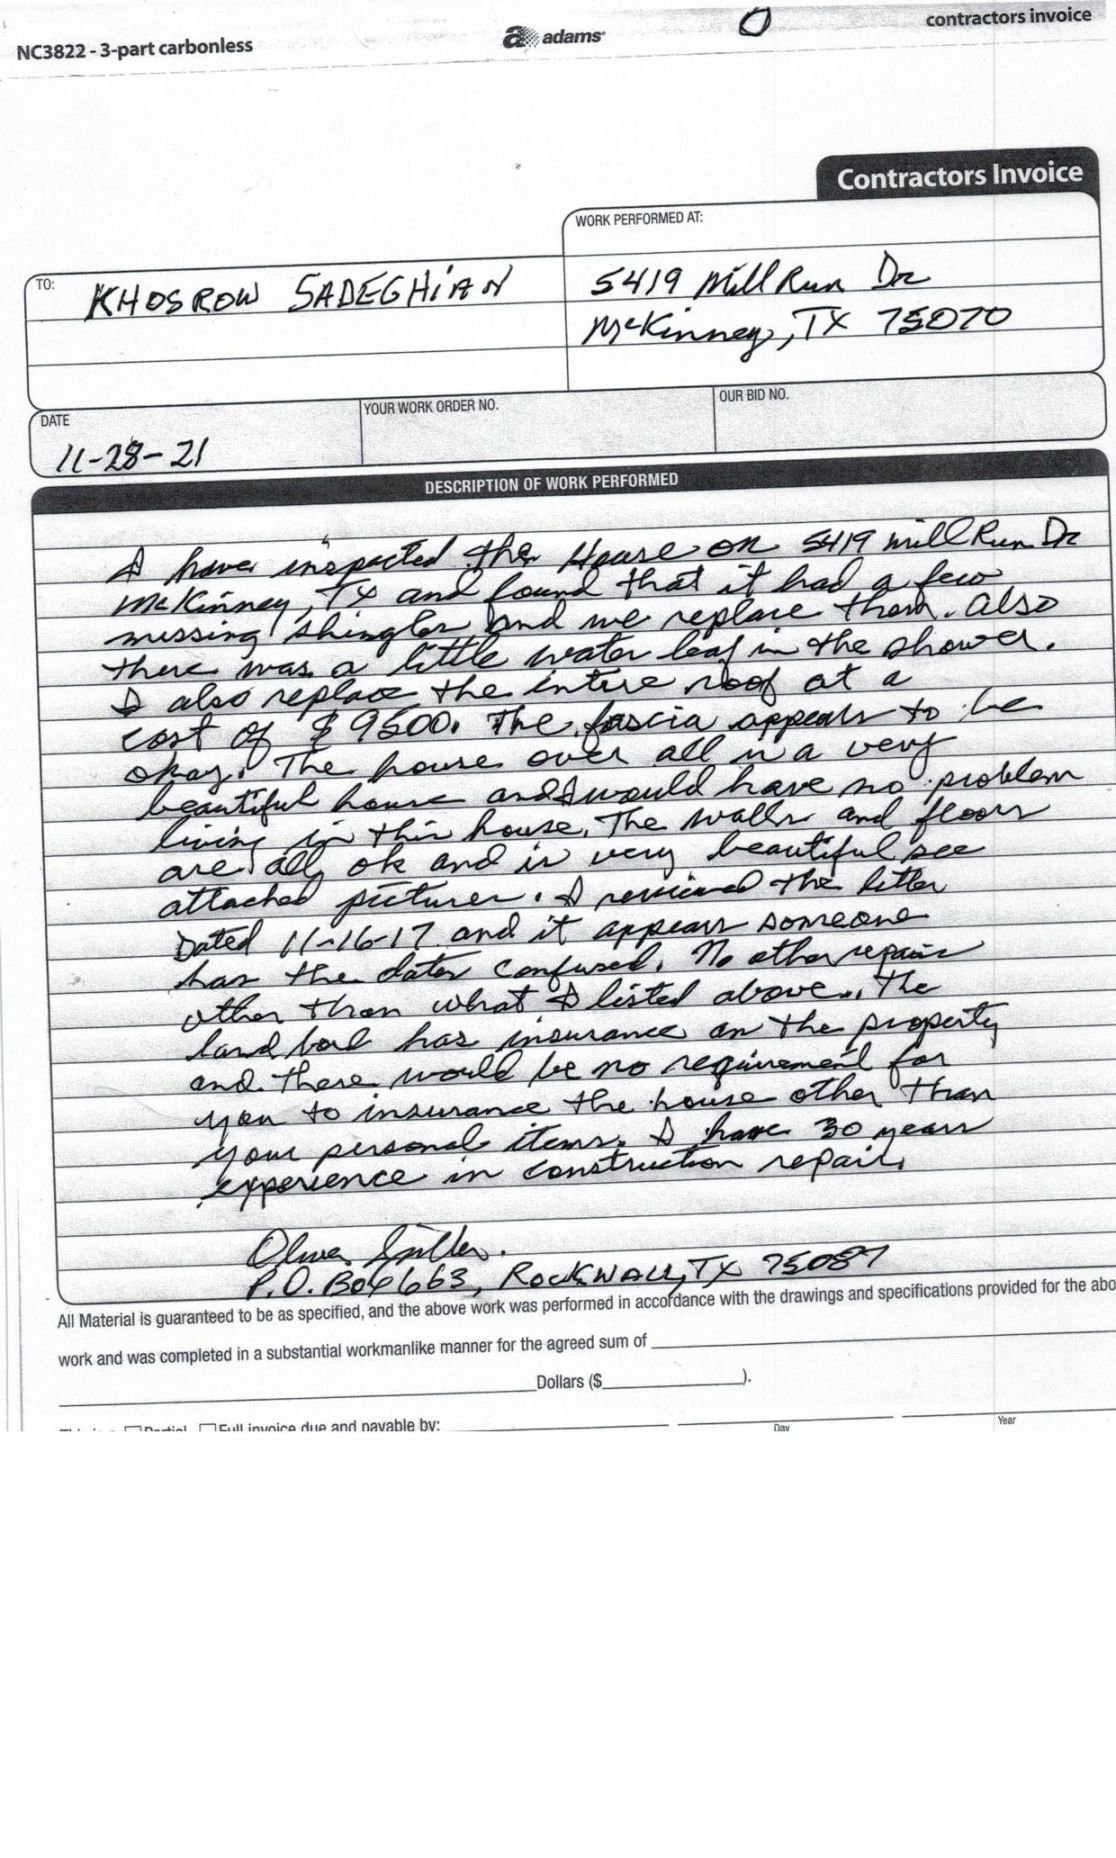 NC3822 - 3-part carbonless
adams
contractors invoice
Contractors Invoice
WORK PERFORMED AT:
TO:
KHOSROW SADEGHIAN
5419 Mill Run Dr
McKinney, TX 75070
DATE
YOUR WORK ORDER NO.
OUR BID NO.
11-28-21
DESCRIPTION OF WORK PERFORMED
I have inspected the House on 5419 Mill Run Dr
McKinney, TX and found that it had a few
missing shingles and we replace them. Also
there was a little water leaf in the shower.
I also replace the entire roof at a
cost of $9500. The fascia appears to be
okay. The house over all is a very
beautiful house and I would have no problem
living in this house. The walls and floors
are all ok and is very beautiful see
attached pictures. I reviewed the letter
Dated 11-16-17 and it appears someone
has the dates confused. No other repairs
other than what I listed above. The
land lord has insurance on the property
and there would be no requirement for
you to insurance the house other than
your personal items. I have 30 years
experience in construction repair.
P.O. Box 663, Rockwall, TX 75087
All Material is guaranteed to be as specified, and the above work was performed in accordance with the drawings and specifications provided for the abo
work and was completed in a substantial workmanlike manner for the agreed sum of
Dollars ($ ).
Partial Full invoice due and payable by:
Day
Year